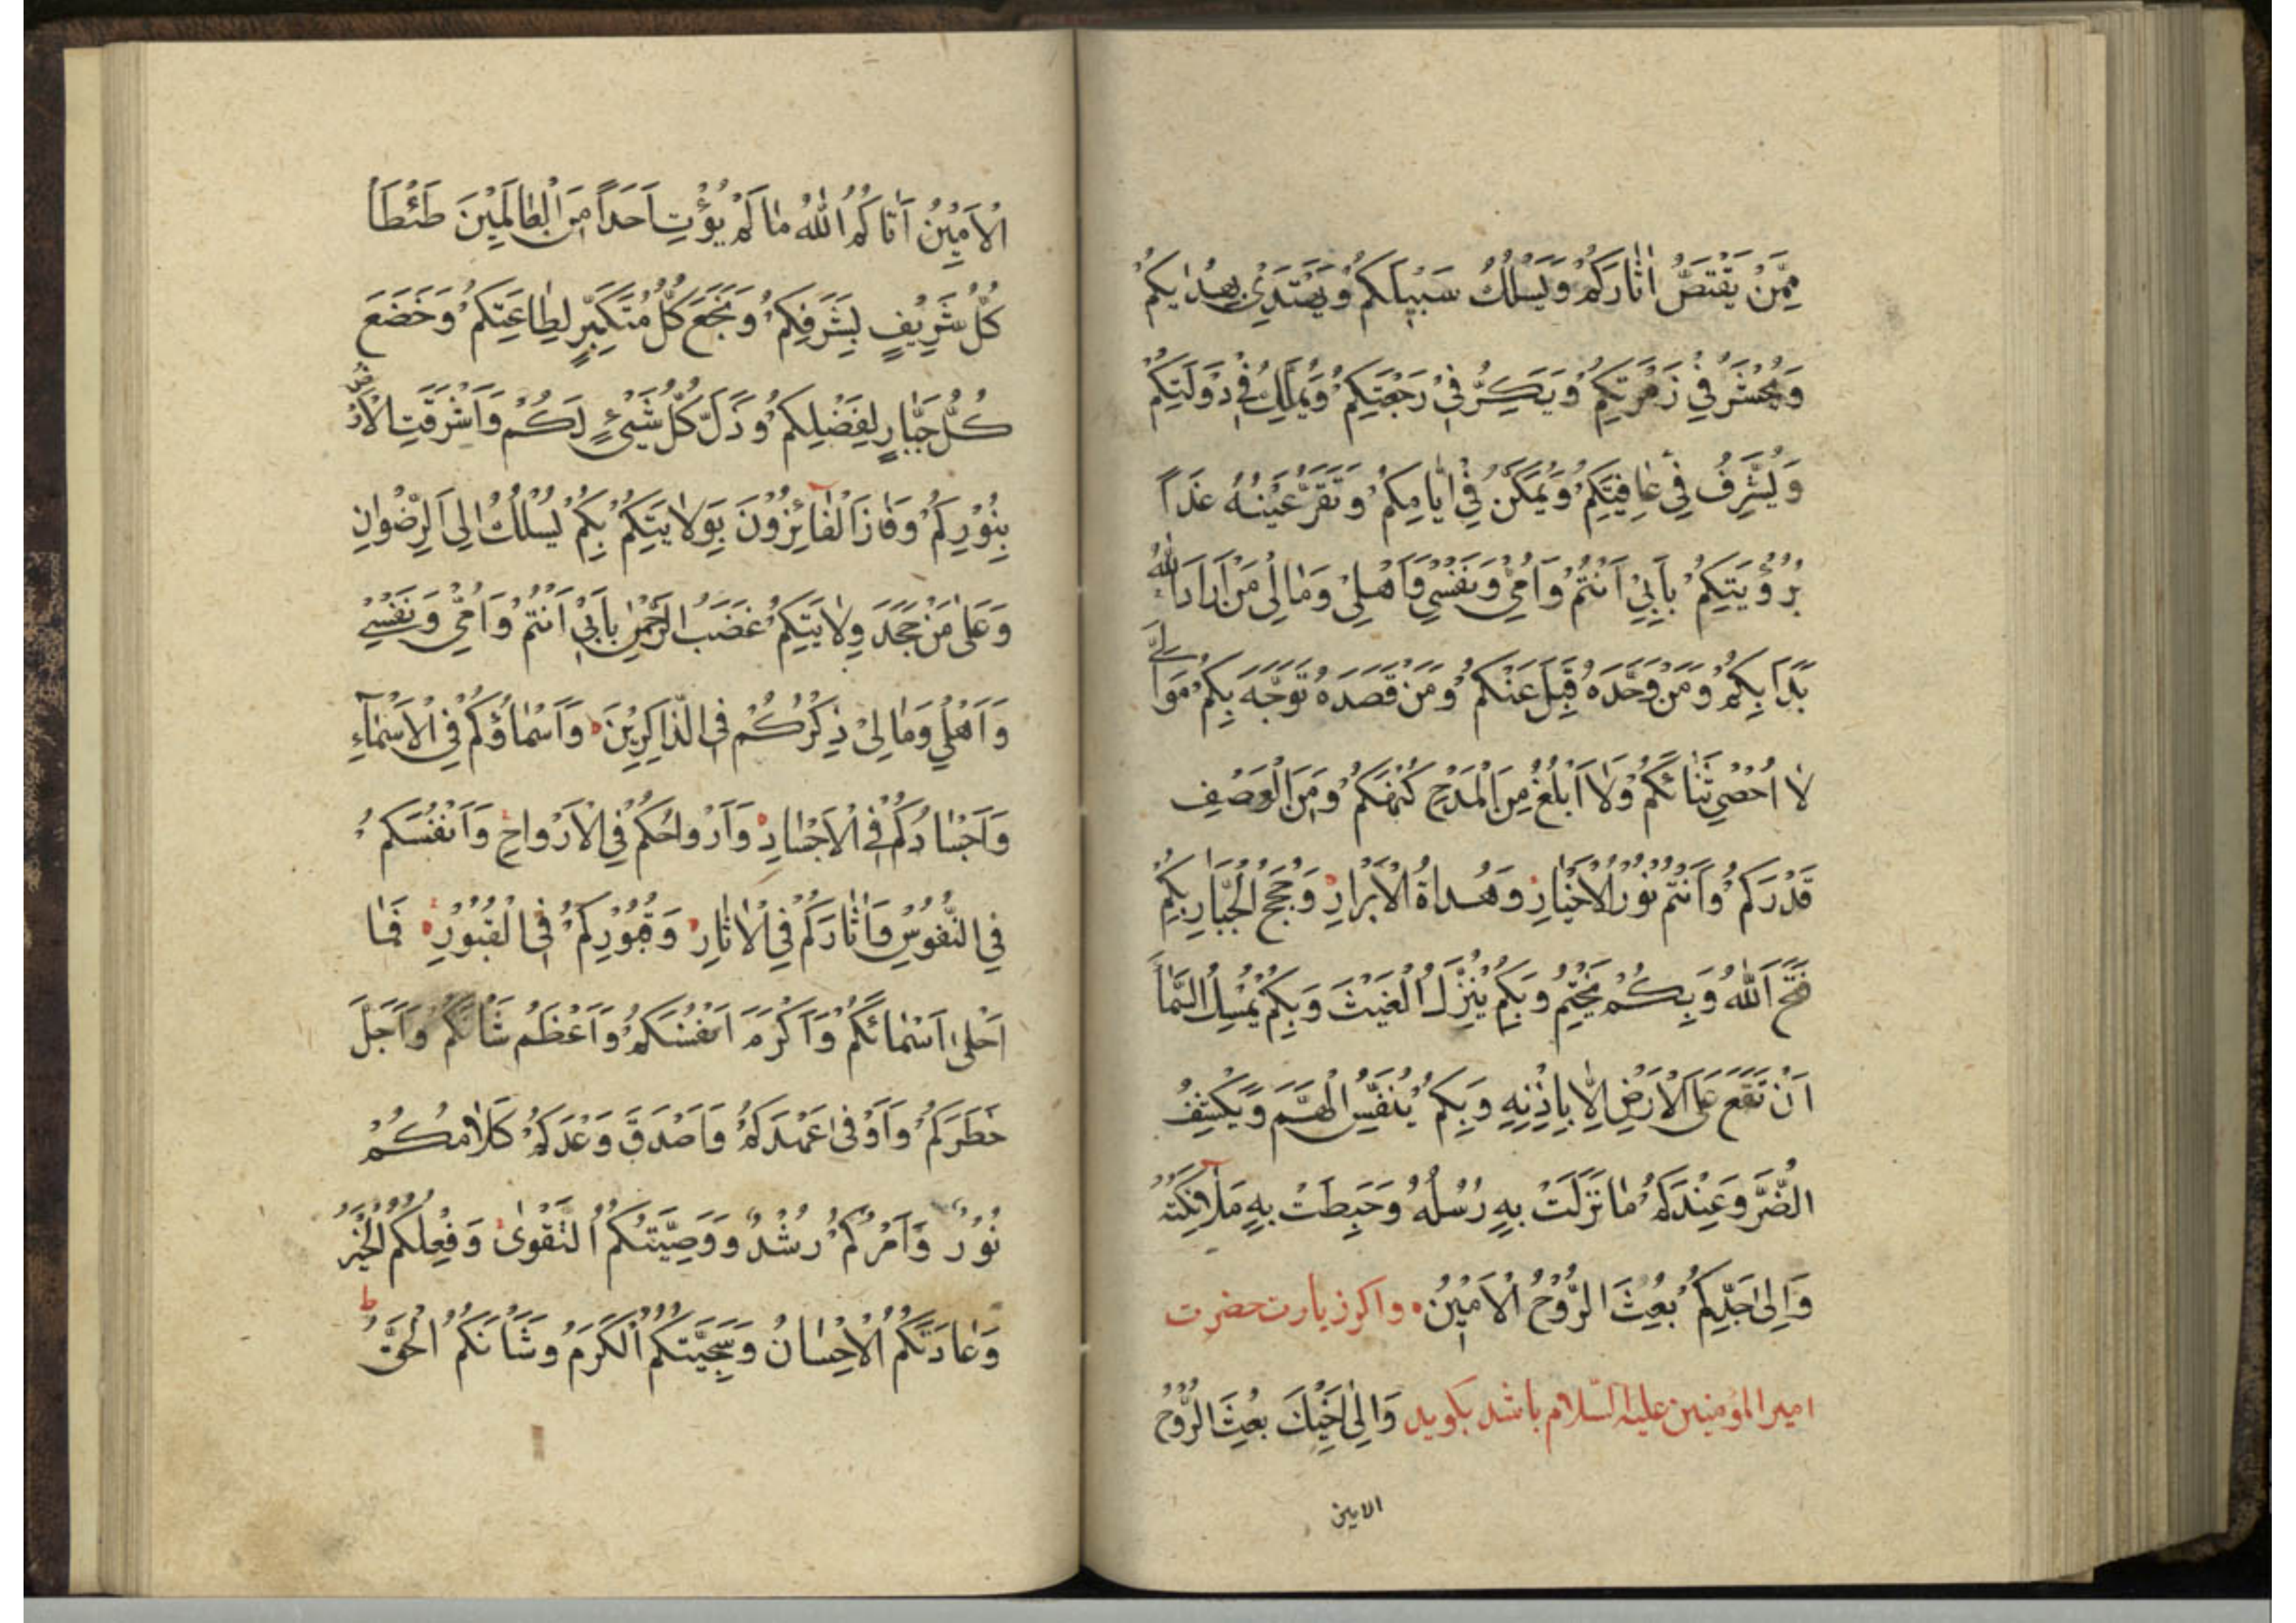 مِمَّنْ يَقْتَصُّ اٰثارَكُمْ وَيَسْلُكُ سَبيلَكُمْ وَيَهْتَدِيْ بِهُدٰيكُمْ
وَيُحْشَرُ فِيْ زُمْرَتِكُمْ وَيَكِرُّ فِيْ رَجْعَتِكُمْ وَيُمَلَّكُ فِيْ دَوْلَتِكُمْ
وَيُشَرَّفُ فِيْ عٰافِيَتِكُمْ وَيُمَكَّنُ فِيْ اَيّٰامِكُمْ وَتَقَرُّ عَيْنُهُ غَدًا
بِرُؤْيَتِكُمْ بِاَبِيْ اَنْتُمْ وَاُمِّيْ وَنَفْسِيْ وَاَهْلِيْ وَمٰالِيْ مَنْ اَرٰادَ اللّٰهَ
بَدَاَ بِكُمْ وَمَنْ وَحَّدَهُ قَبِلَ عَنْكُمْ وَمَنْ قَصَدَهُ تَوَجَّهَ بِكُمْ مَوٰالِيَّ
لٰا اُحْصِيْ ثَنٰائَكُمْ وَلٰا اَبْلُغُ مِنَ الْمَدْحِ كُنْهَكُمْ وَمِنَ الْوَصْفِ
قَدْرَكُمْ وَاَنْتُمْ نُوْرُ الْاَخْيٰارِ وَهُدٰاةُ الْاَبْرٰارِ وَحُجَجُ الْجَبّٰارِ بِكُمْ
فَتَحَ اللّٰهُ وَبِكُمْ يَخْتِمُ وَبِكُمْ يُنَزِّلُ الْغَيْثَ وَبِكُمْ يُمْسِكُ السَّمٰاءَ
اَنْ تَقَعَ عَلَى الْاَرْضِ اِلّٰا بِاِذْنِهِ وَبِكُمْ يُنَفِّسُ الْهَمَّ وَيَكْشِفُ
الضُّرَّ وَعِنْدَكُمْ مٰا نَزَلَتْ بِهِ رُسُلُهُ وَهَبَطَتْ بِهِ مَلٰائِكَتُهُ
وَاِلىٰ جَدِّكُمْ بُعِثَ الرُّوْحُ الْاَمِيْنُ ه واكر زيارت حضرت
امير المؤمنين عليه السّلام باشد بكويد وَاِلىٰ اَخِيْكَ بُعِثَ الرُّوْحُ
الامين
الْاَمِيْنُ اٰتٰاكُمُ اللّٰهُ مٰا لَمْ يُؤْتِ اَحَدًا مِنَ الْعٰالَمِيْنَ طَئْطَأَ
كُلُّ شَرِيْفٍ لِشَرَفِكُمْ وَبَخَعَ كُلُّ مُتَكَبِّرٍ لِطٰاعَتِكُمْ وَخَضَعَ
كُلُّ جَبّٰارٍ لِفَضْلِكُمْ وَذَلَّ كُلُّ شَيْئٍ لَكُمْ وَاَشْرَقَتِ الْاَرْضُ
بِنُوْرِكُمْ وَفٰازَ الْفٰائِزُوْنَ بِوِلٰايَتِكُمْ بِكُمْ يُسْلَكُ اِلَى الرِّضْوٰانِ
وَعَلىٰ مَنْ جَحَدَ وِلٰايَتَكُمْ غَضَبُ الرَّحْمٰنِ بِاَبِيْ اَنْتُمْ وَاُمِّيْ وَنَفْسِيْ
وَاَهْلِيْ وَمٰالِيْ ذِكْرُكُمْ فِي الذّٰاكِرِيْنَ ه وَاَسْمٰاؤُكُمْ فِي الْاَسْمٰآءِ
وَاَجْسٰادُكُمْ فِي الْاَجْسٰادِ ه وَاَرْوٰاحُكُمْ فِي الْاَرْوٰاحِ وَاَنْفُسُكُمْ
فِي النُّفُوْسِ وَاٰثٰارُكُمْ فِي الْاٰثٰارِ ه وَقُبُوْرِكُمْ فِي الْقُبُوْرِ ه فَمٰا
اَحْلىٰ اَسْمٰائَكُمْ وَاَكْرَمَ اَنْفُسَكُمْ وَاَعْظَمَ شَأْنَكُمْ وَاَجَلَّ
خَطَرَكُمْ وَاَوْفىٰ عَهْدَكُمْ وَاَصْدَقَ وَعْدَكُمْ كَلٰامُكُمْ
نُوْرٌ وَاَمْرُكُمْ رُشْدٌ وَوَصِيَّتُكُمُ التَّقْوىٰ وَفِعْلُكُمُ الْخَيْرُ
وَعٰادَتُكُمُ الْاِحْسٰانُ وَسَجِيَّتُكُمُ الْكَرَمُ وَشَأْنُكُمُ الْحَقُّ ط